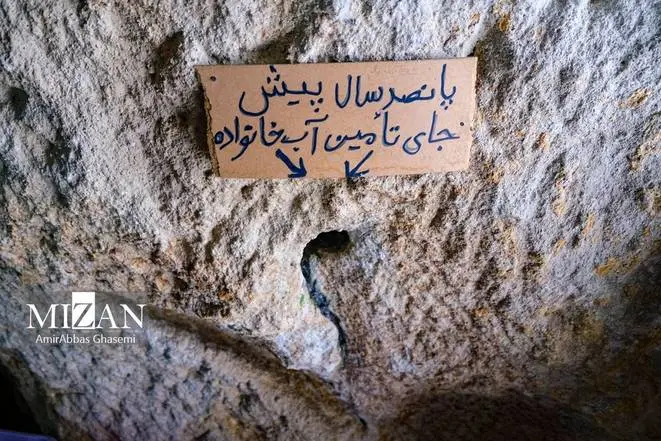 پانصد سال پیش
جای تأمین آب خانواده
MIZAN
AmirAbbas Ghasemi